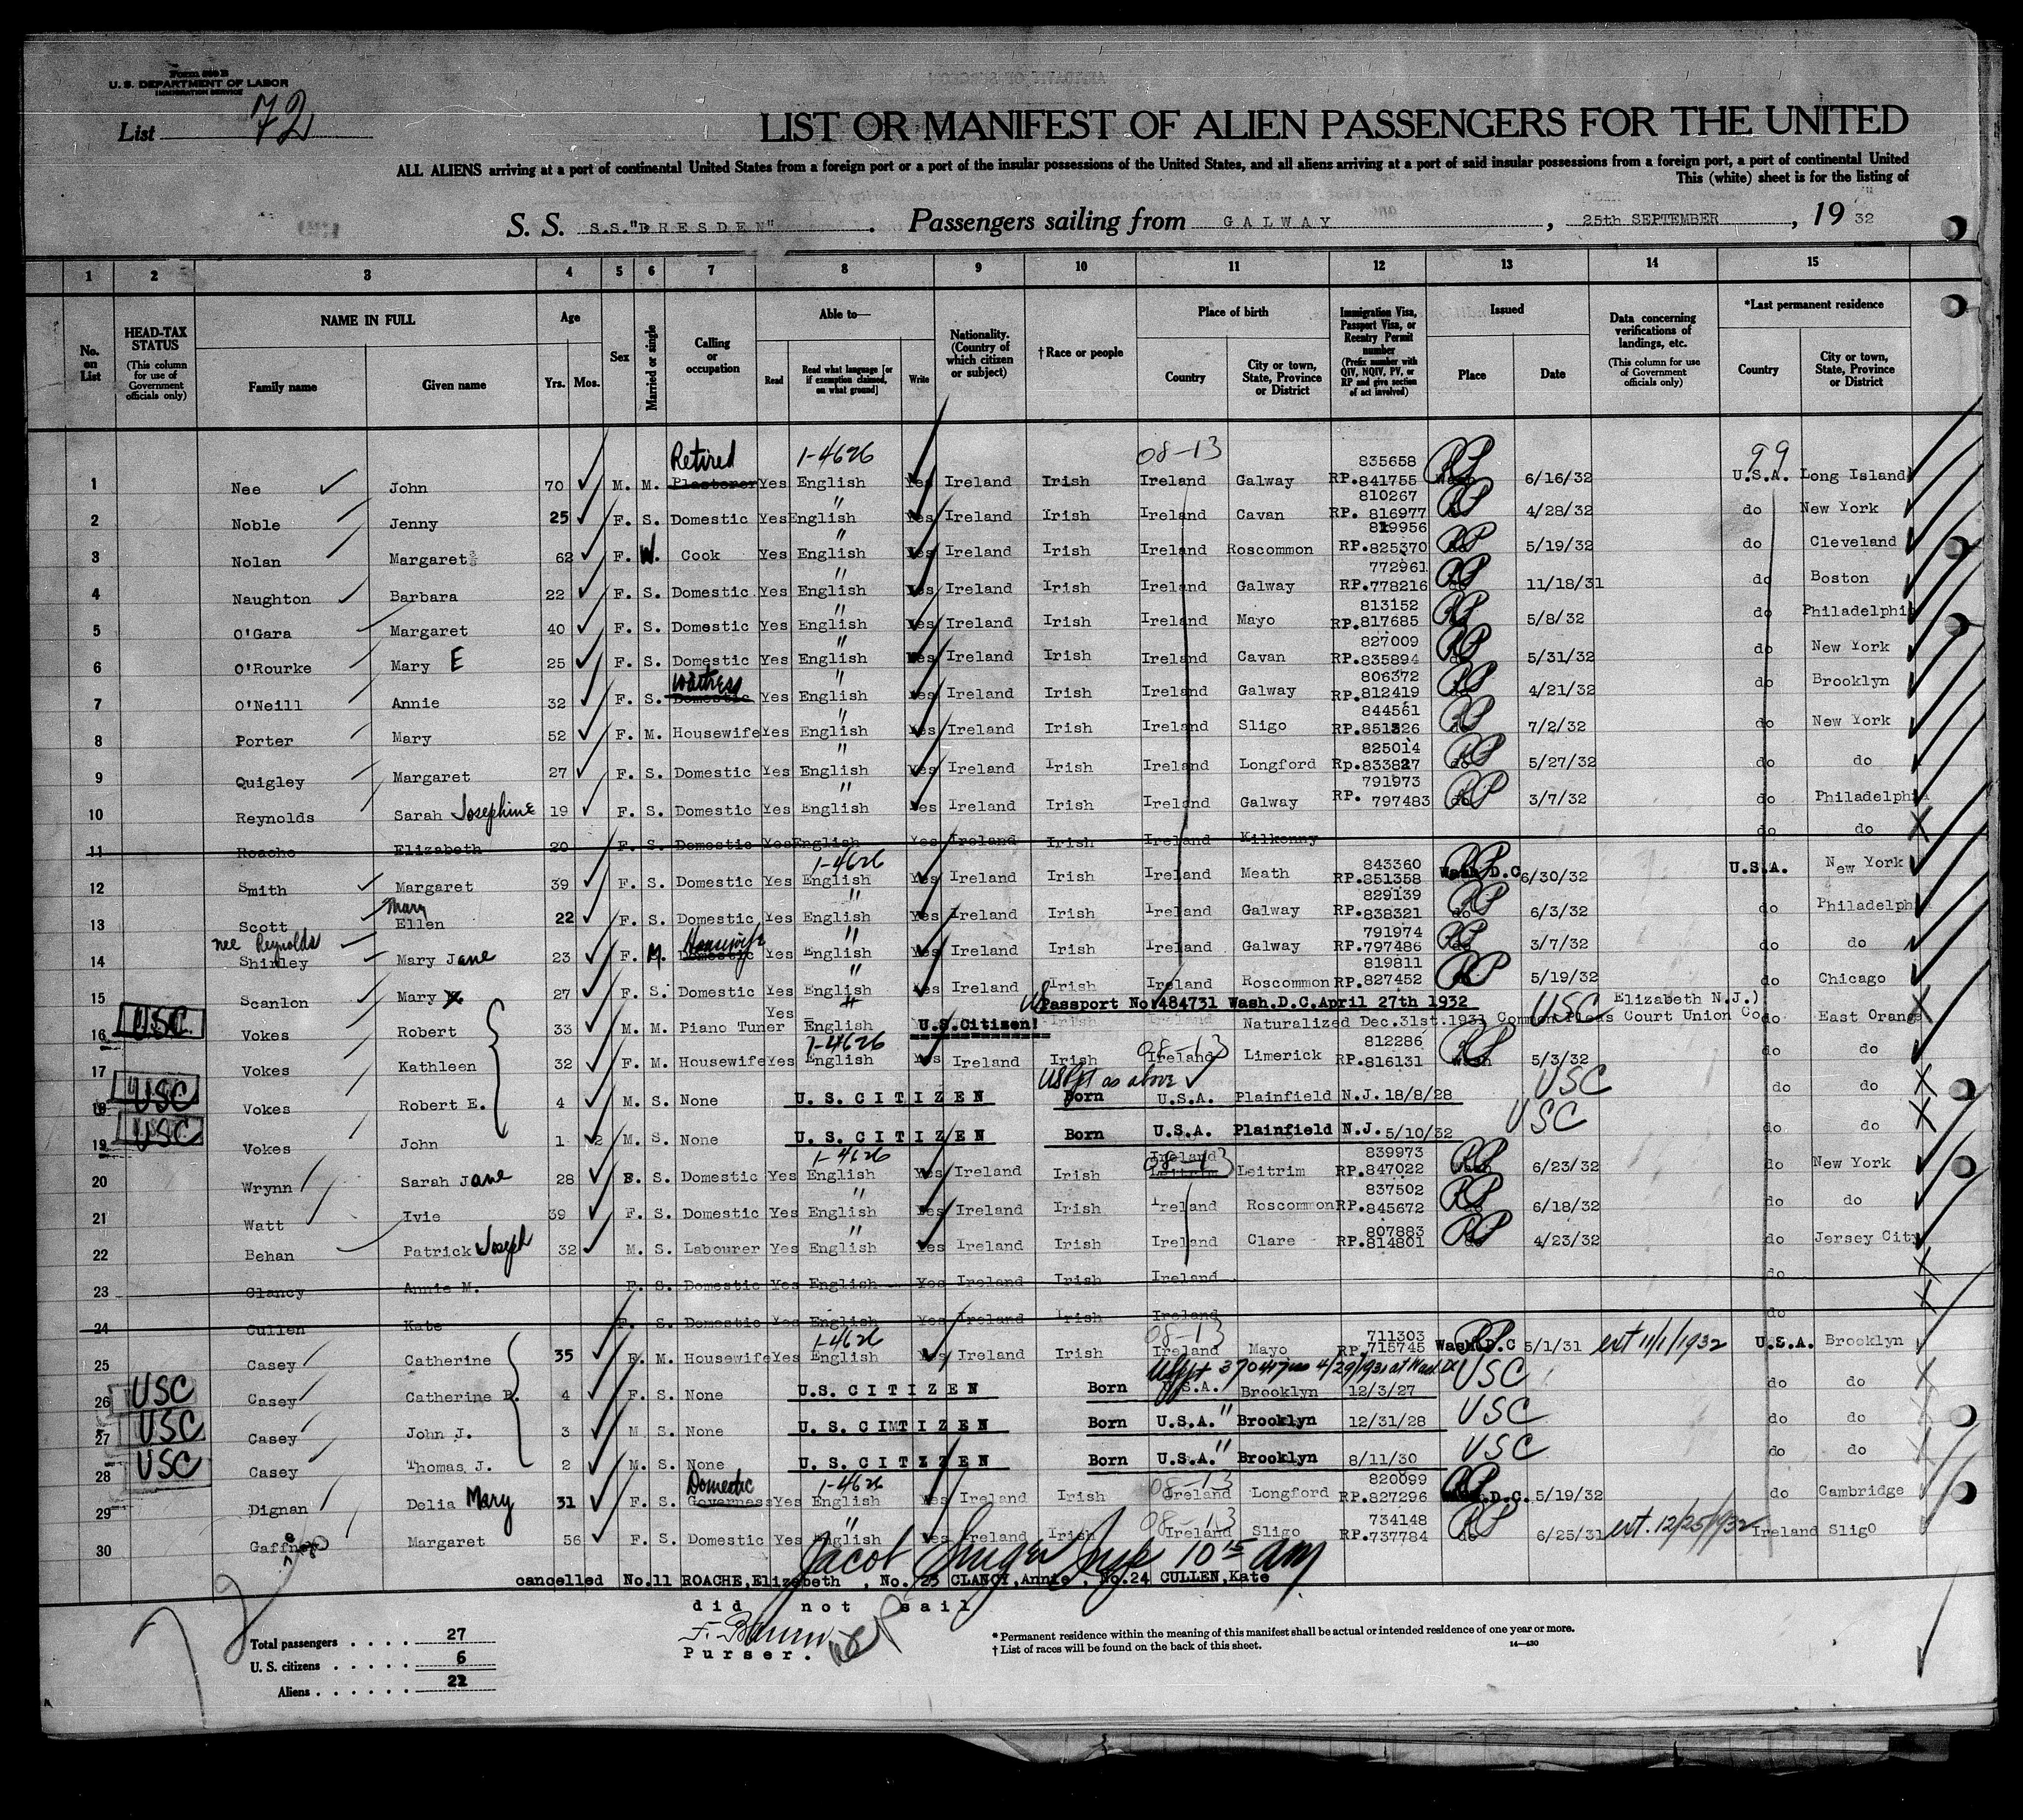 Form 500 B
U. S. DEPARTMENT OF LABOR
IMMIGRATION SERVICE
List 72
LIST OR MANIFEST OF ALIEN PASSENGERS FOR THE UNITED
ALL ALIENS arriving at a port of continental United States from a foreign port or a port of the insular possessions of the United States, and all aliens arriving at a port of said insular possessions from a foreign port, a port of continental United
This (white) sheet is for the listing of
S. S. S.S."DRESDEN". Passengers sailing from GALWAY, 25th SEPTEMBER, 19 32
1 2 3 4 5 6 7 8 9 10 11 12 13 14 15
No. on List HEAD-TAX STATUS (This column for use of Government officials only) NAME IN FULL Family name Given name Age Yrs. Mos. Sex Married or single Calling or occupation Able to— Read Read what language [or if exemption claimed, on what ground] Write Nationality. (Country of which citizen or subject) †Race or people Place of birth Country City or town, State, Province or District Immigration Visa, Passport Visa, or Reentry Permit number (Prefix number with QIV, NQIV, PV, or RP and give section of act involved) Issued Place Date Data concerning verifications of landings, etc. (This column for use of Government officials only) *Last permanent residence Country City or town, State, Province or District
Retired 1-4626 08-13 835658 99
1 Nee John 70 M. M. Plasterer Yes English Yes Ireland Irish Ireland Galway RP.841755 Wash 6/16/32 U.S.A. Long Island
810267
2 Noble Jenny 25 F. S. Domestic Yes English " Yes Ireland Irish Ireland Cavan RP. 816977 do 4/28/32 do New York
819956
3 Nolan Margaret 62 F. W. Cook Yes English " Yes Ireland Irish Ireland Roscommon RP.825370 do 5/19/32 do Cleveland
772961
4 Naughton Barbara 22 F. S. Domestic Yes English " Yes Ireland Irish Ireland Galway RP.778216 do 11/18/31 do Boston
813152
5 O'Gara Margaret 40 F. S. Domestic Yes English " Yes Ireland Irish Ireland Mayo RP.817685 do 5/8/32 do Philadelphia
827009
6 O'Rourke Mary E 25 F. S. Domestic Yes English " Yes Ireland Irish Ireland Cavan RP.835894 do 5/31/32 do New York
Waitress 806372
7 O'Neill Annie 32 F. S. Domestic Yes English " Yes Ireland Irish Ireland Galway RP.812419 do 4/21/32 do Brooklyn
844561
8 Porter Mary 52 F. M. Housewife Yes English " Yes Ireland Irish Ireland Sligo RP.851326 do 7/2/32 do New York
825014
9 Quigley Margaret 27 F. S. Domestic Yes English " Yes Ireland Irish Ireland Longford Rp.833827 do 5/27/32 do do
791973
10 Reynolds Sarah Josephine 19 F. S. Domestic Yes English " Yes Ireland Irish Ireland Galway RP. 797483 do 3/7/32 do Philadelphia
11 Roache Elizabeth 20 F. S. Domestic Yes English Yes Ireland Irish Ireland Kilkenny do do
1-4626 843360
12 Smith Margaret 39 F. S. Domestic Yes English Yes Ireland Irish Ireland Meath RP.851358 Wash.D.C 6/30/32 U.S.A. New York
Mary 829139
13 Scott Ellen 22 F. S. Domestic Yes English " Yes Ireland Irish Ireland Galway RP.838321 do 6/3/32 do Philadelph
nee Reynolds Housewife 791974
14 Shirley Mary Jane 23 F. M. Domestic Yes English " Yes Ireland Irish Ireland Galway RP.797486 do 3/7/32 do do
819811
15 Scanlon Mary 27 F. S. Domestic Yes English " Yes Ireland Irish Ireland Roscommon RP.827452 do 5/19/32 do Chicago
US Passport No.484731 Wash.D.C.April 27th 1932 USC Elizabeth N.J.)
16 USC Vokes Robert 33 M. M. Piano Tuner Yes English U.S.Citizen! Irish Naturalized Dec.31st.1931 Common Pleas Court Union Co. do East Orange
1-4626 08-13 812286
17 Vokes Kathleen 32 F. M. Housewife Yes English Yes Ireland Irish Ireland Limerick RP.816131 Wash 5/3/32 do do
US ppt as above USC
18 USC Vokes Robert E. 4 M. S. None U.S. CITIZEN Born U.S.A. Plainfield N.J. 18/8/28 do do
USC
19 USC Vokes John 1 2 M. S. None U.S. CITIZEN Born U.S.A. Plainfield N.J. 5/10/32 do do
1-4626 Ireland 08-13 839973
20 Wrynn Sarah Jane 28 F. S. Domestic Yes English Yes Ireland Irish Leitrim Leitrim RP.847022 Wash 6/23/32 do New York
837502
21 Watt Ivie 39 F. S. Domestic Yes English " Yes Ireland Irish Ireland Roscommon RP.845672 do 6/18/32 do do
807883
22 Behan Patrick Joseph 32 M. S. Labourer Yes English " Yes Ireland Irish Ireland Clare RP.814801 do 4/23/32 do Jersey City
23 Clancy Annie M. F. S. Domestic Yes English Yes Ireland Irish Ireland do
24 Cullen Kate F. S. Domestic Yes English Yes Ireland Irish Ireland do
1-4626 08-13 711303
25 Casey Catherine 35 F. M. Housewife Yes English Yes Ireland Irish Ireland Mayo RP.715745 Wash.D.C 5/1/31 ext 11/1/1932 U.S.A. Brooklyn
US ppt 370417 iss 4/29/1931 at Wash DC USC
26 USC Casey Catherine B. 4 F. S. None U.S. CITIZEN Born U.S.A. Brooklyn 12/3/27 do do
27 USC Casey John J. 3 M S. None U.S. CIMTIZEN Born U.S.A. " Brooklyn 12/31/28 USC do do
28 USC Casey Thomas J. 2 M. S. None U.S. CITIZEN Born U.S.A. " Brooklyn 8/11/30 USC do do
Domestic 1-4626 08-13 820099
29 Dignan Delia Mary 31 F. S. Governess Yes English Yes Ireland Irish Ireland Longford RP.827296 Wash.D.C. 5/19/32 do Cambridge
08-13 734148
30 Gaffney Margaret 56 F. S. Domestic Yes English " Yes Ireland Irish Ireland Sligo RP.737784 do 6/25/31 ext. 12/25/1932 Ireland Sligo
Jacob 10 15 am
cancelled No.11 ROACHE,Elizabeth , No. 23 CLANCY,Annie , No.24 CULLEN,Kate
did not sail
Purser.
Total passengers . . . . 27
U. S. citizens . . . . . 6
Aliens . . . . . . 22
* Permanent residence within the meaning of this manifest shall be actual or intended residence of one year or more.
† List of races will be found on the back of this sheet. 14—430